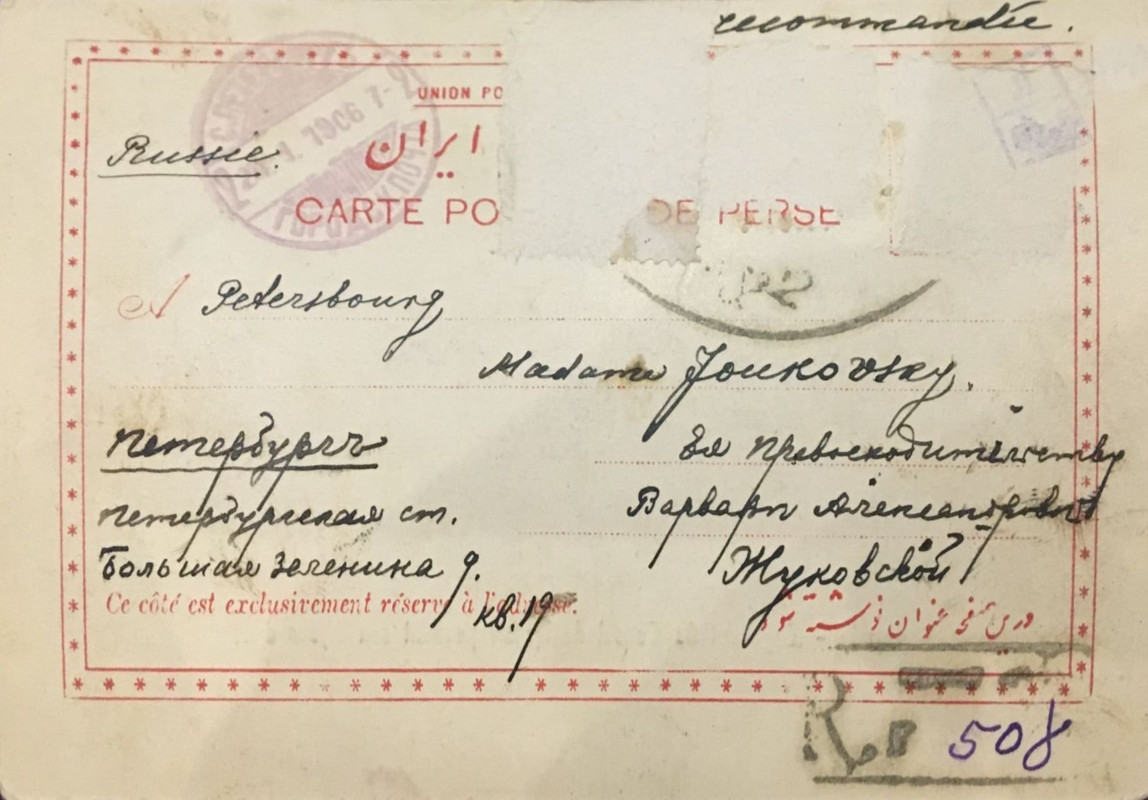 recommandée.
UNION PO
Russie.
С.ПЕТЕ
1 1906 7-
ГОРОД. ПОЧТ
ایران
CARTE PO DE PERSE
A Petersbourg
Madame Joukovsky.
Петербургъ
Ея Превосходительству
Петербургская ст.
Варварѣ Александровнѣ
Большая Зеленина 9.
Жуковской
Ce côté est exclusivement réservé à l'adresse.
кв. 19
درین صفحه عنوان نوشته شود
R 508